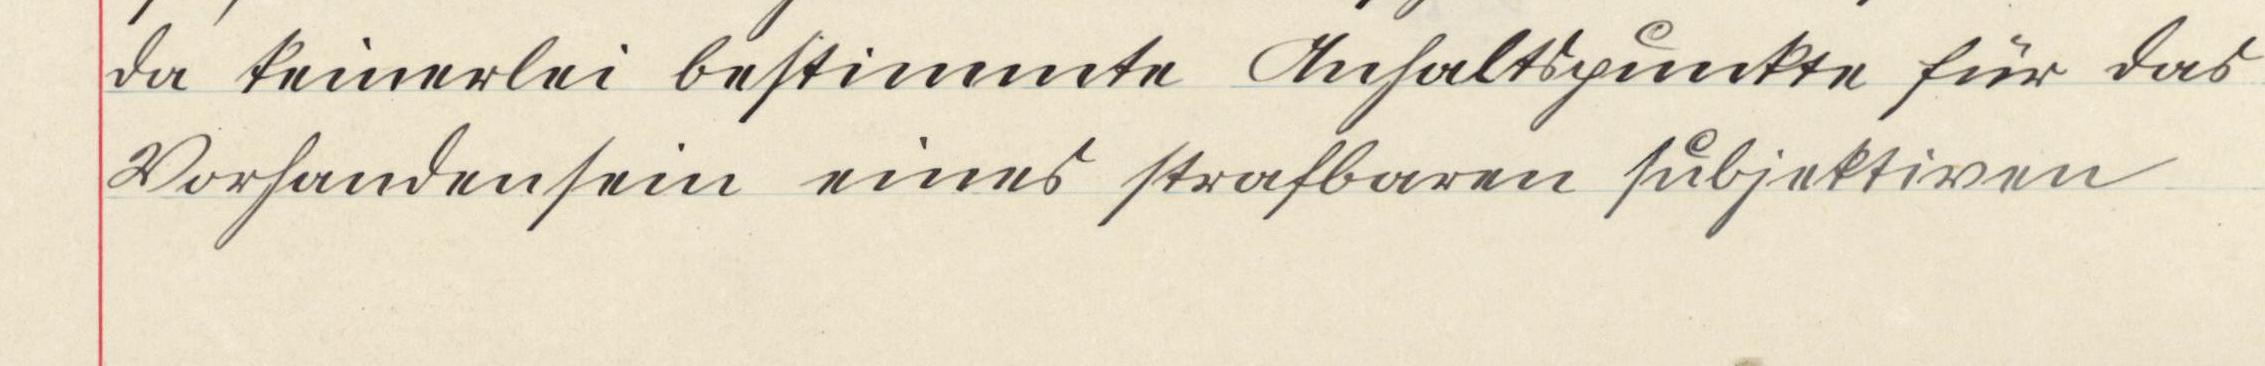 da keinerlei bestimmte Anhaltspunkte für das
Vorhandensein eines strafbaren subjektiven